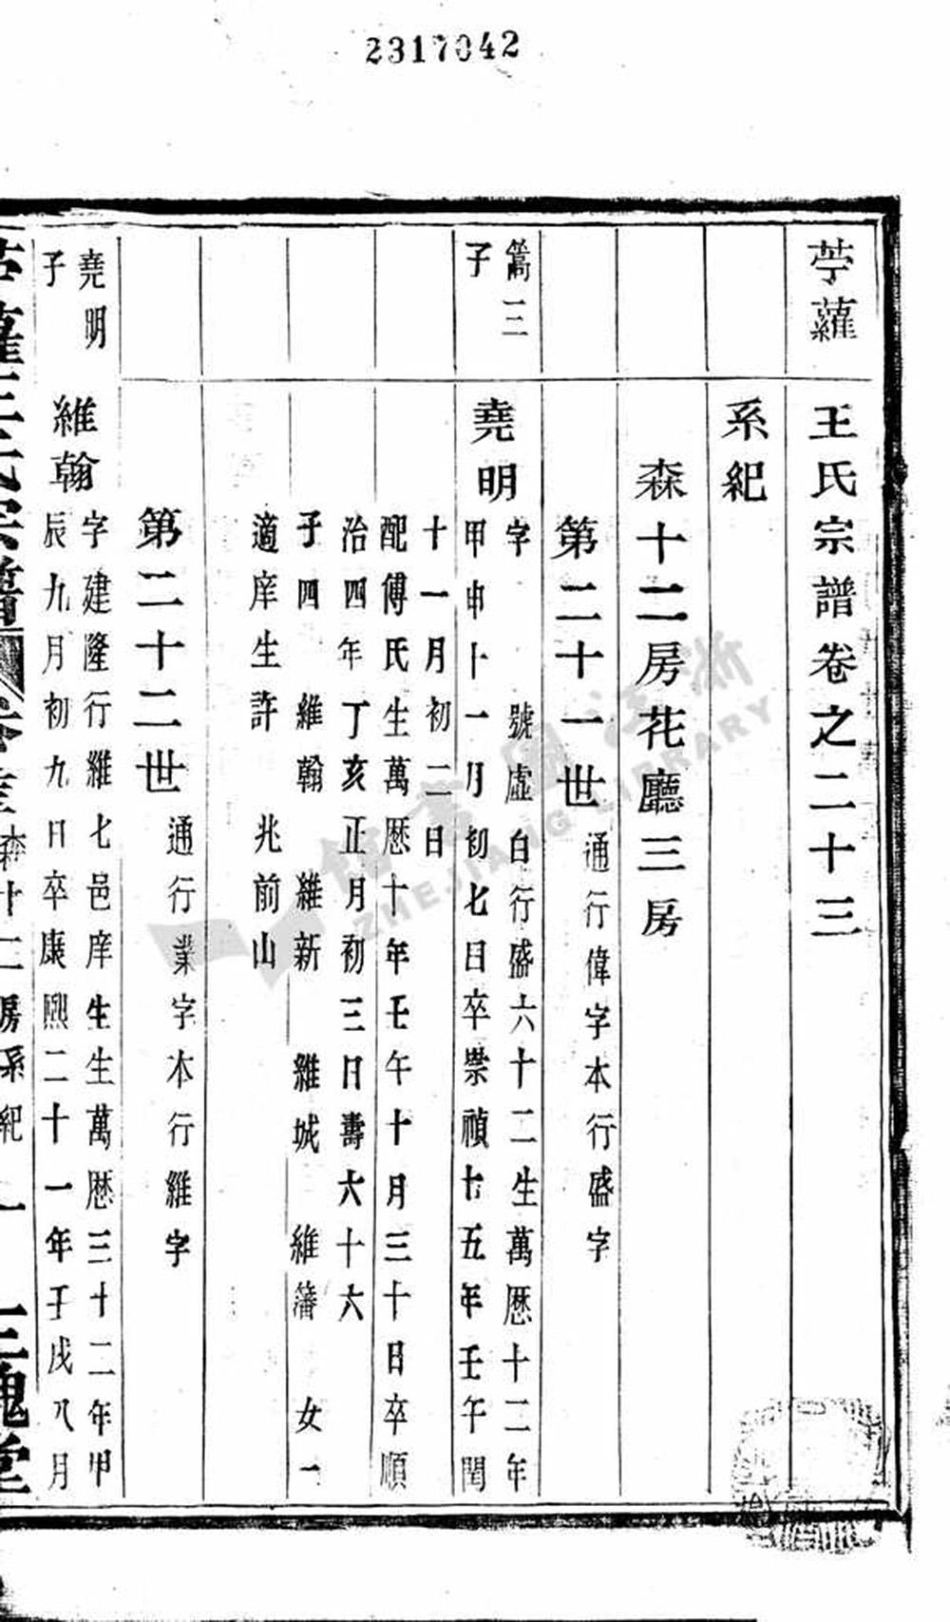 2317042
苧蘿
王氏宗譜卷之二十三
系紀
森十二房花廳三房
第二十一世 通行偉字本行盛字
篙三
子
堯明
字 號虛白行盛六十二生萬歷十二年
甲申十一月初七日卒崇禎七五年壬午閏
十一月初二日
配傅氏生萬歷十年壬午十月三十日卒順
治四年丁亥正月初三日壽六十六
子四 維翰 維新 維城 維藩 女一
適庠生許 兆前山
第二十二世 通行業字本行維字
堯明
子
維翰
字建隆行維七邑庠生生萬歷三十二年甲
辰九月初九日卒康熙二十一年壬戌八月
苧蘿王氏宗譜 森十二房系紀 一 三槐堂
浙江圖書館
ZHEJIANG LIBRARY